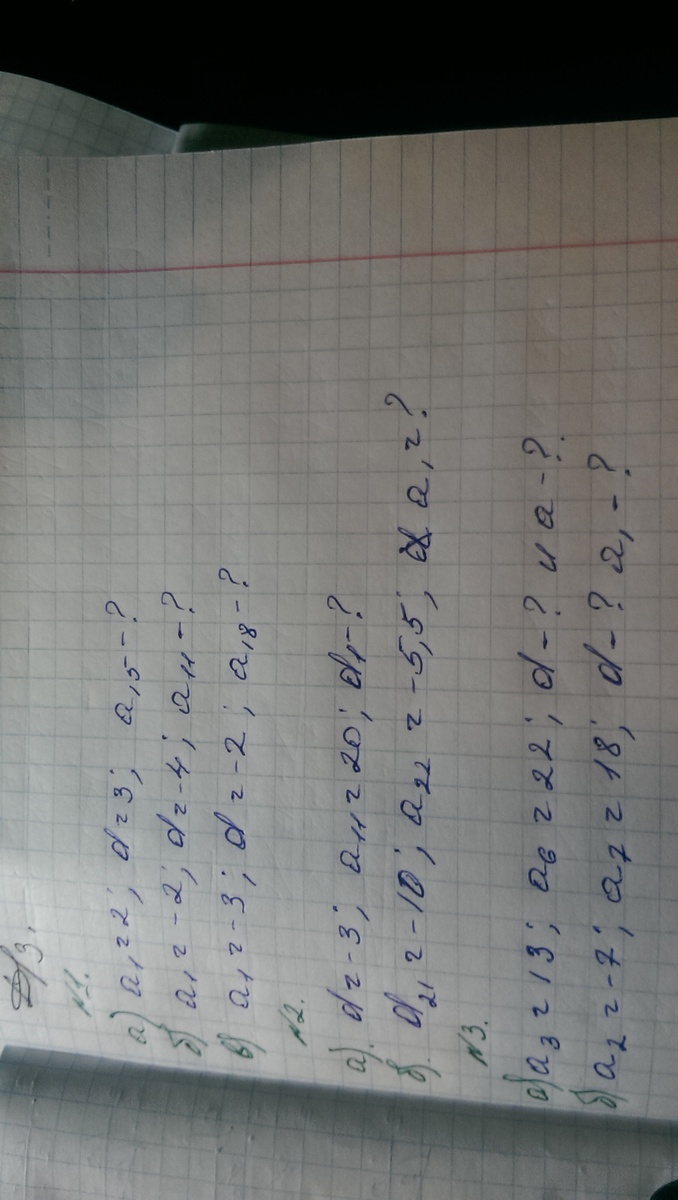 Д/З.
№1.
а) a₁=2; d=3; a₁₅-?
б) a₁=-2; d=-4; a₁₁-?
в) a₁=-3; d=-2; a₁₈-?
№2.
а). d=-3; a₁₁=20; d₁-?
б). d₂₁=-10; a₂₂=-5,5; a₁=?
№3.
а) a₃=13; a₆=22; d-? и a-?.
б) a₂=-7; a₇=18; d-? a₁-?